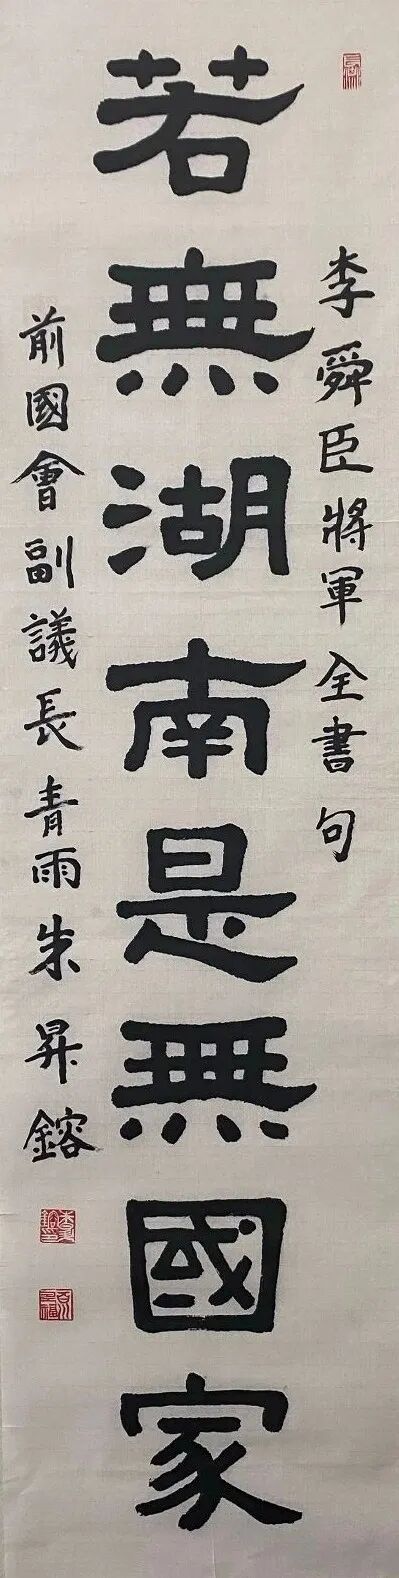 李舜臣將軍全書句
若無湖南是無國家
前國會副議長青雨朱昇鎔